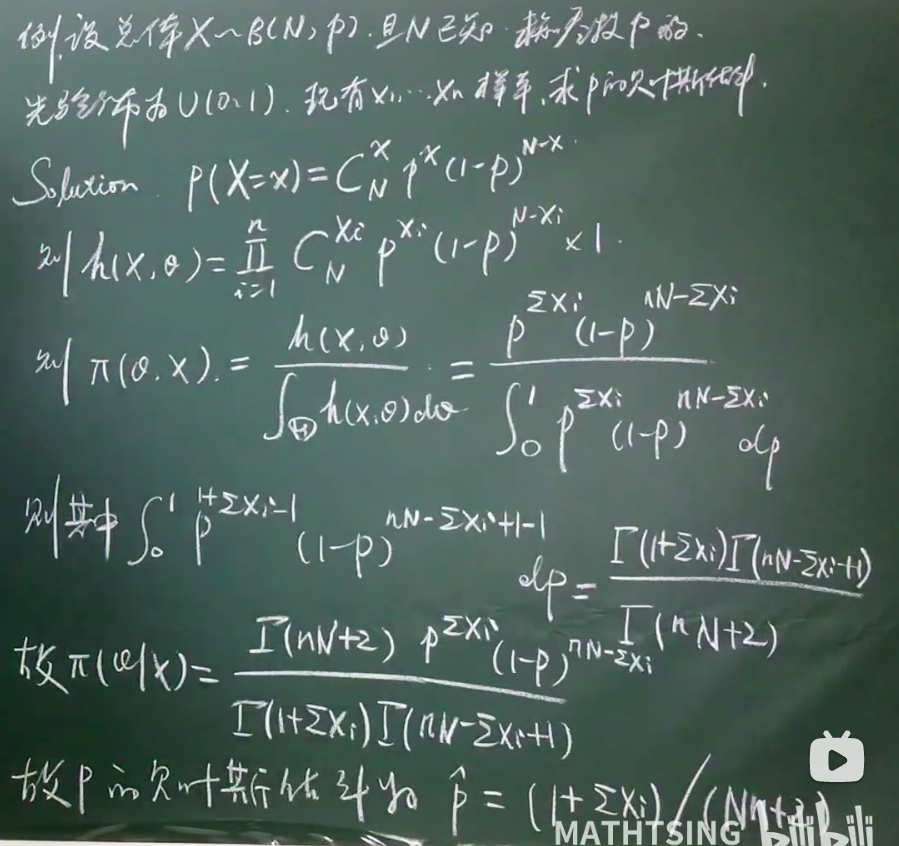 例.设总体X~B(N,p).且N已知.称参数p的.
先验分布为U(0,1).现有x₁,…xₙ样本,求p的贝叶斯估计.
Solution. p(X=x)=C_N^x p^x (1-p)^{N-x}.
则 h(x,θ)=∏_{i=1}^{n} C_N^{xi} p^{xi} (1-p)^{N-xi} ×1.
则 π(θ.x).= h(x,θ) / ∫_Θ h(x,θ)dθ = p^{Σxi} (1-p)^{nN-Σxi} / ∫_0^1 p^{Σxi} (1-p)^{nN-Σxi} dp
则其中 ∫_0^1 p^{1+Σxi-1} (1-p)^{nN-Σxi+1-1} dp = Γ(1+Σxi)Γ(nN-Σxi+1) / Γ(nN+2)
故 π(θ|x)= Γ(nN+2) p^{Σxi} (1-p)^{nN-Σxi} / Γ(1+Σxi)Γ(nN-Σxi+1)
故p的贝叶斯估计为 p̂ = (1+Σxi)/(Nn+2)
MATHTSING bilibili